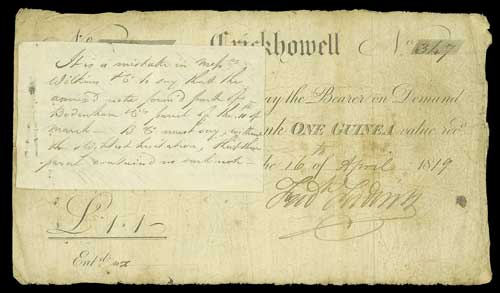 No
Crickhowell No 347
It is a mistake in Messrs
Wilkins & Co to say that the
annexd note form'd part of
Bodenham & Co parcel of the 11 of
march - B & C must say, without
the slightest hesitation, that their
parcel contained no such note -
ay the Bearer on Demand
ONE GUINEA value recd
the 16th of April 1819
£1.1-
Entd